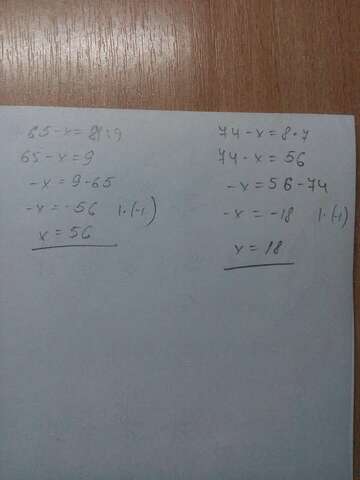 65-x=81:9
65-x=9
-x=9-65
-x=-56 |·(-1)
x=56
74-x=8·7
74-x=56
-x=56-74
-x=-18 |·(-1)
x=18